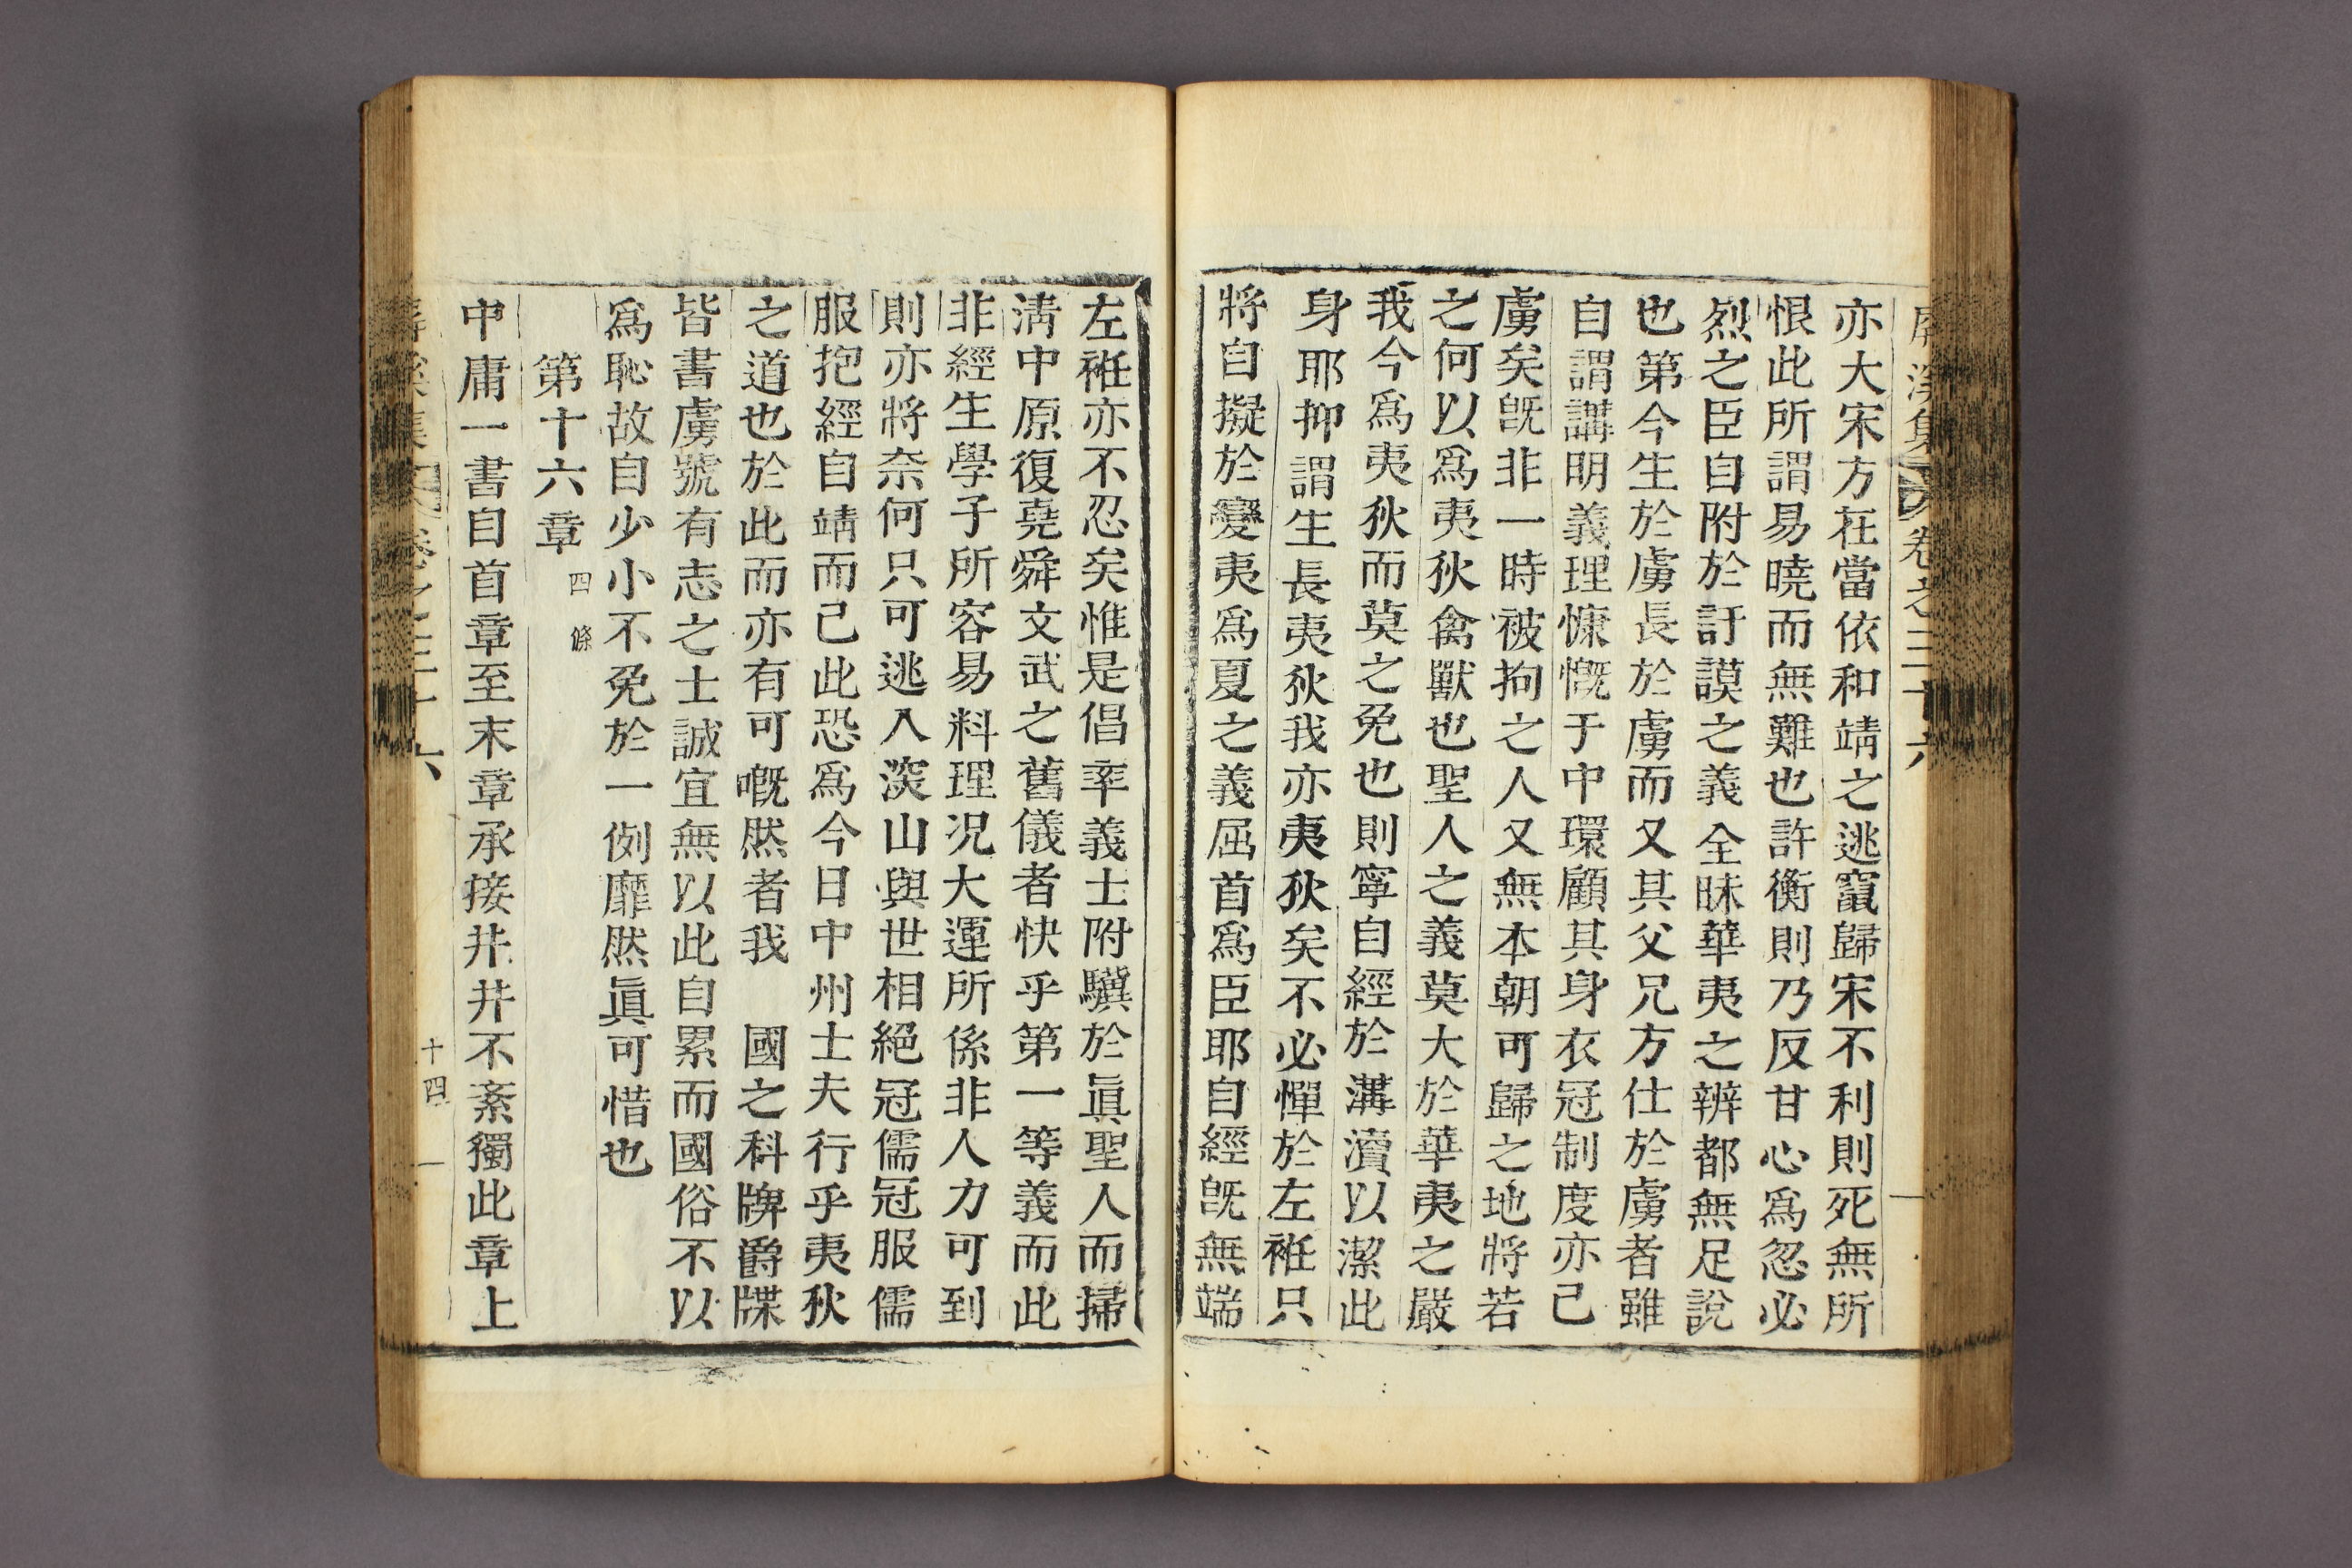 屛溪集 卷之三十六
亦大宋方在當依和靖之逃竄歸宋不利則死無所
恨此所謂易曉而無難也許衡則乃反甘心爲忽必
烈之臣自附於訏謨之義全昧華夷之辨都無足說
也第今生於虜長於虜而又其父兄方仕於虜者雖
自謂講明義理慷慨于中環顧其身衣冠制度亦已
虜矣旣非一時被拘之人又無本朝可歸之地將若
之何以爲夷狄禽獸也聖人之義莫大於華夷之嚴
我今爲夷狄而莫之免也則寧自經於溝瀆以潔此
身耶抑謂生長夷狄我亦夷狄矣不必憚於左袵只
將自擬於變夷爲夏之義屈首爲臣耶自經旣無端
左袵亦不忍矣惟是倡率義士附驥於眞聖人而掃
淸中原復堯舜文武之舊儀者快乎第一等義而此
非經生學子所容易料理況大運所係非人力可到
則亦將奈何只可逃入深山與世相絕冠儒冠服儒
服抱經自靖而已此恐爲今日中州士夫行乎夷狄
之道也於此而亦有可嘅然者我 國之科牌爵牒
皆書虜號有志之士誠宜無以此自累而國俗不以
爲恥故自少小不免於一例靡然眞可惜也
第十六章 四條
中庸一書自首章至末章承接井井不紊獨此章上
集 卷之三十六 十四